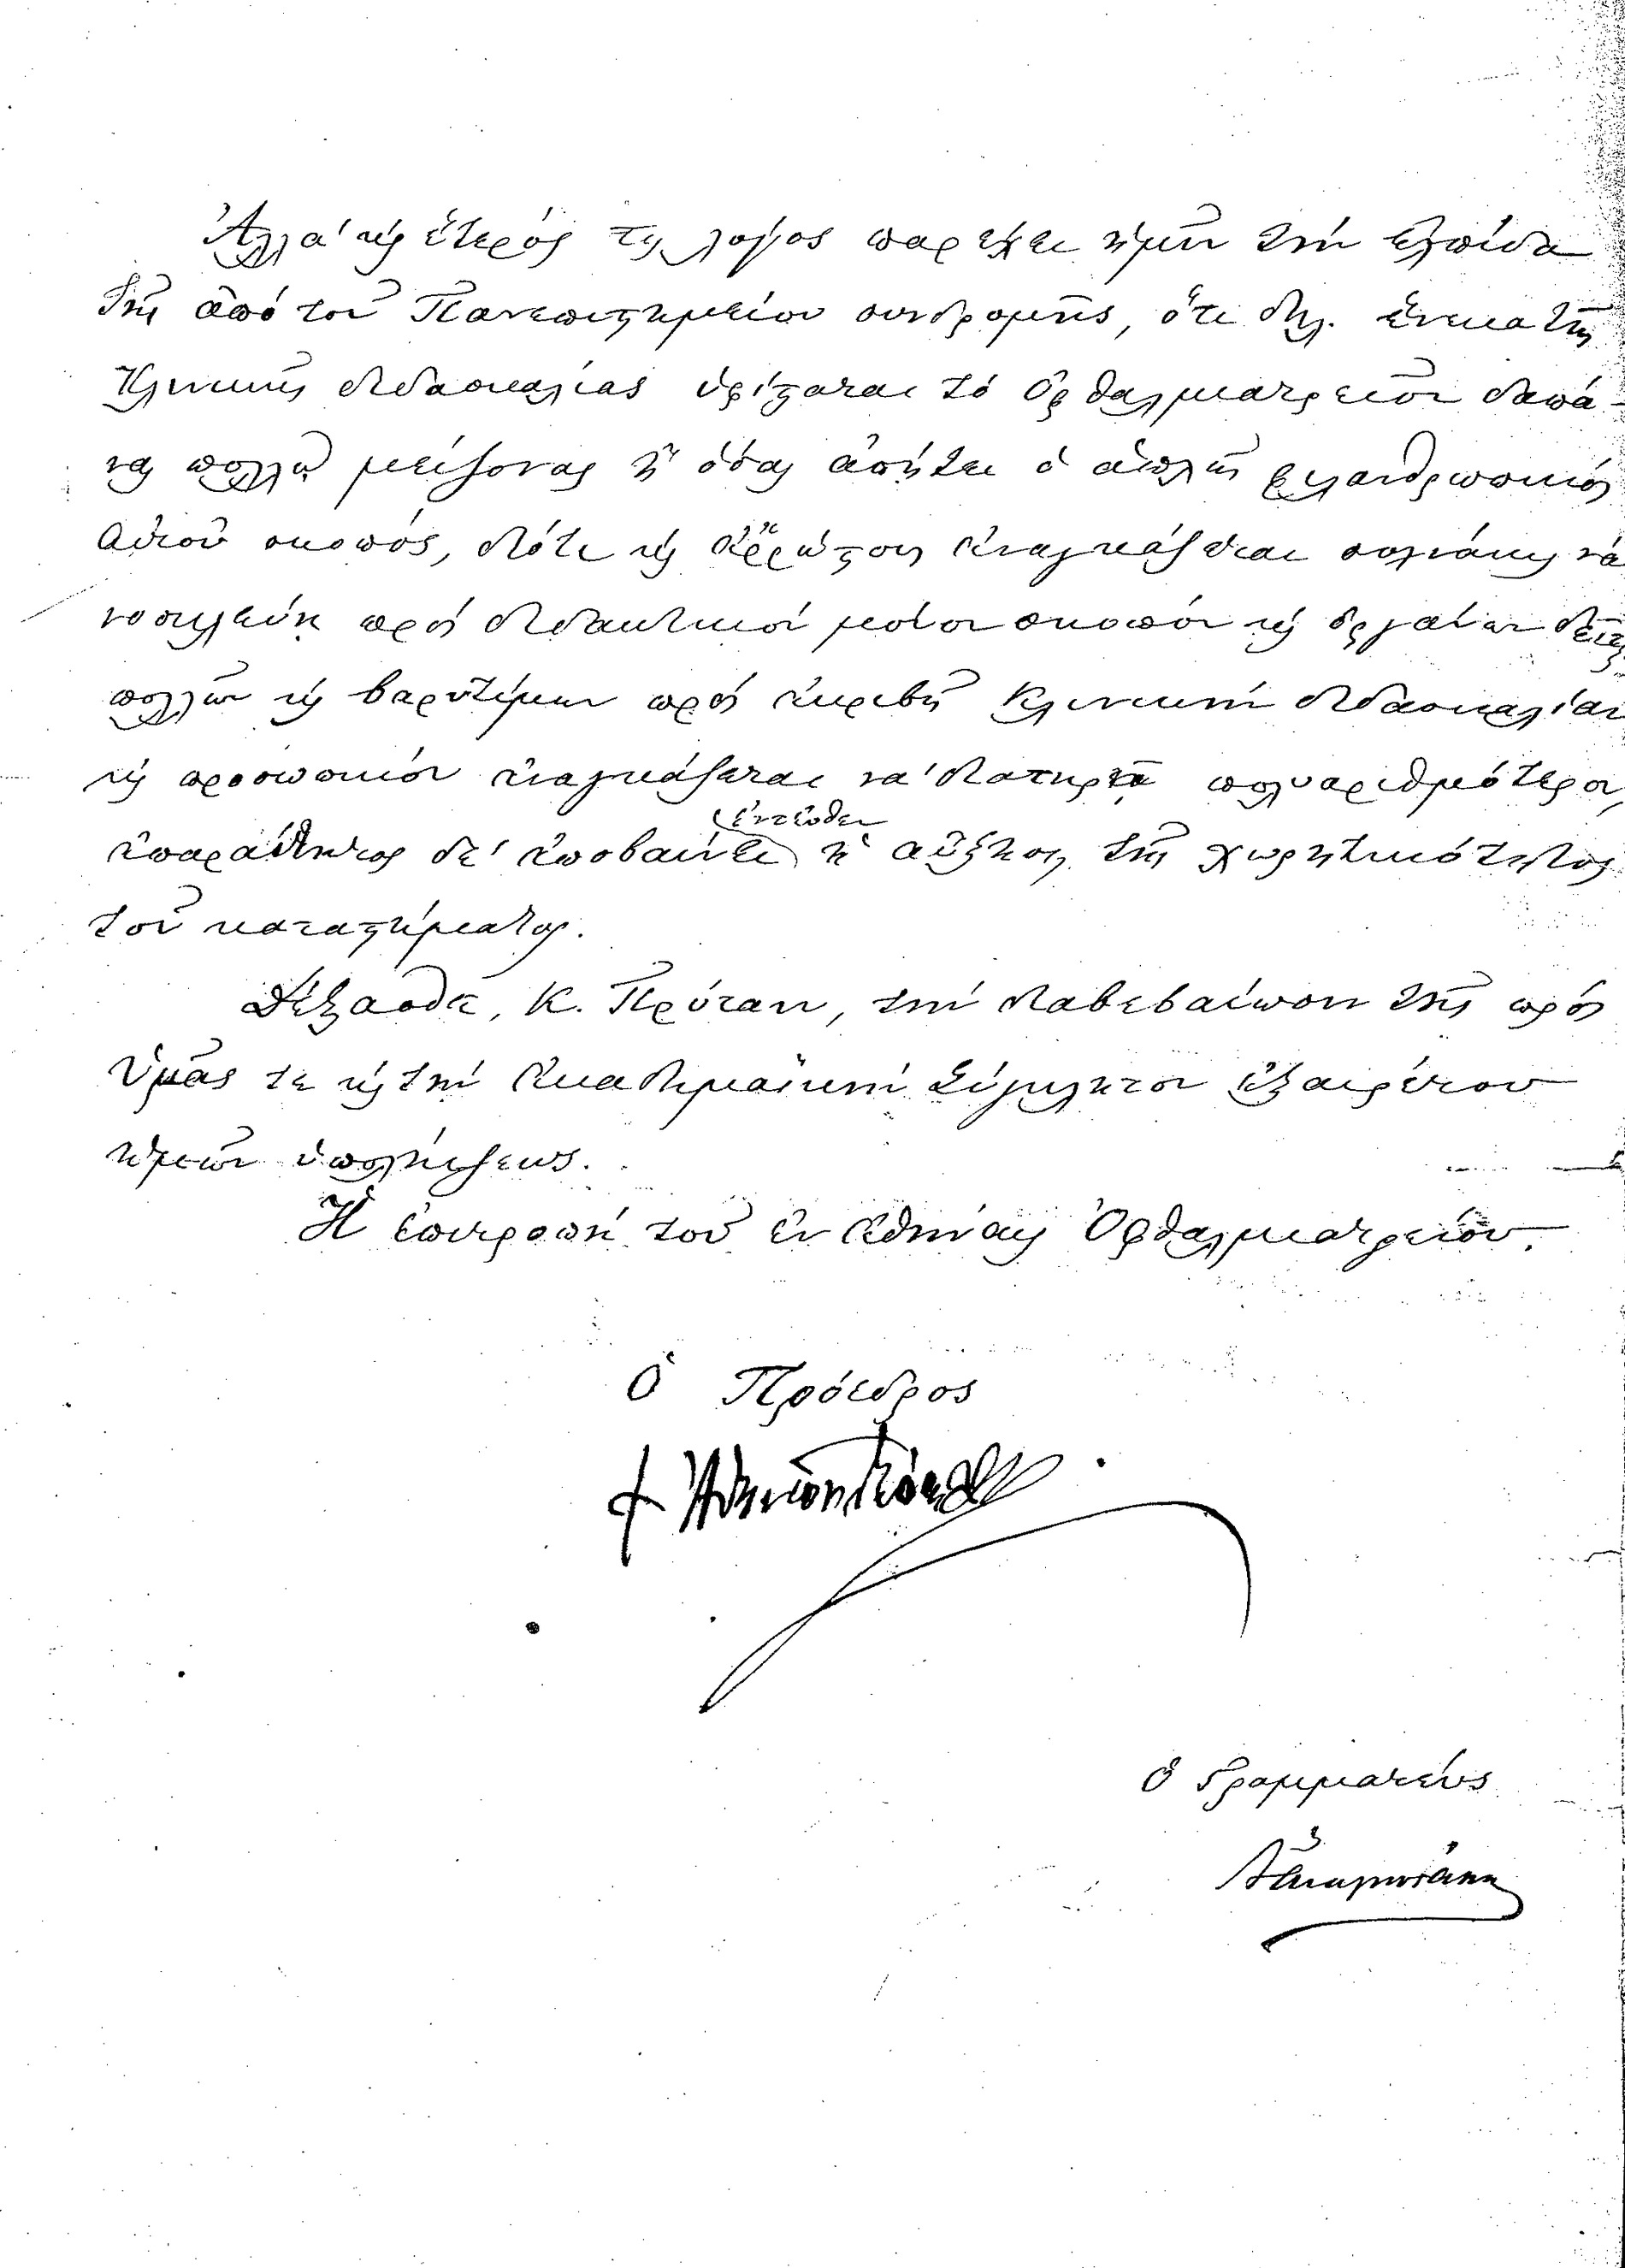 Ἀλλὰ καὶ ἕτερός τις λόγος παρέχει ἡμῖν τὴν ἐλπίδα
τῆς ἀπὸ τοῦ Πανεπιστημείου συνδρομῆς, ὅτι δηλ. ἕνεκα τῆς
Κλινικῆς διδασκαλίας ὑφίσταται τὸ Ὀφθαλμιατρεῖον δαπά-
νας πολλῷ μείζονας ἢ ὅσας ἀπῄτει ὁ ἁπλῶς φιλανθρωπικὸς
αὐτοῦ σκοπός, διότι καὶ ἀρρώστους ἀναγκάζεται πολλάκις νὰ
νοσηλεύῃ πρὸς διδακτικὸν μόνον σκοπὸν καὶ ἐργαλείων δεῖται
πολλῶν καὶ βαρυτίμων πρὸς ἀκριβῆ Κλινικὴν διδασκαλίαν
καὶ προσωπικὸν ἀναγκάζεται νὰ διατηρῇ πολυαριθμότερον,
ἐντεῦθεν
ἀπαραίτητος δὲ ἀποβαίνει ἡ αὔξησις τῆς χωρητικότητος
τοῦ καταστήματος.
Δέξασθε, Κ. Πρύτανι, τὴν διαβεβαίωσιν τῆς πρὸς
ὑμᾶς τε καὶ τὴν Ἀκαδημαϊκὴν Σύγκλητον ἐξαιρέτου
ἡμῶν ὑπολήψεως.
Ἡ ἐπιτροπὴ τοῦ ἐν Ἀθήναις Ὀφθαλμιατρείου.
Ὁ Πρόεδρος
Ὁ Γραμματεὺς